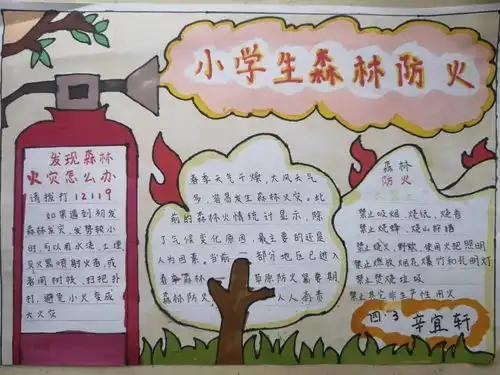 小学生森林防火
发现森林
火灾怎么办
请拨打 12119
如果遇到初发
森林火灾,火势较小
时,可以用水浇、土埋
灭火器喷射火苗,或
者用树枝、扫把扑
打,避免小火变成
大火灾
春季天气干燥,大风天气
多,容易发生森林火灾。此
前的森林火情统计显示,除
了气候变化原因,最主要的还是
人为因素。当前一部分地区已进入
春季森林 草原防火紧要期
森林防火 人人有责
森林
防火
禁止吸烟、烧纸、烧香
禁止烧蜂、烧山狩猎
禁止烧火、野炊、使用火把照明
禁止燃放烟花爆竹和孔明灯
禁止焚烧垃圾
禁止其它非生产性用火
四.3 辛宜轩